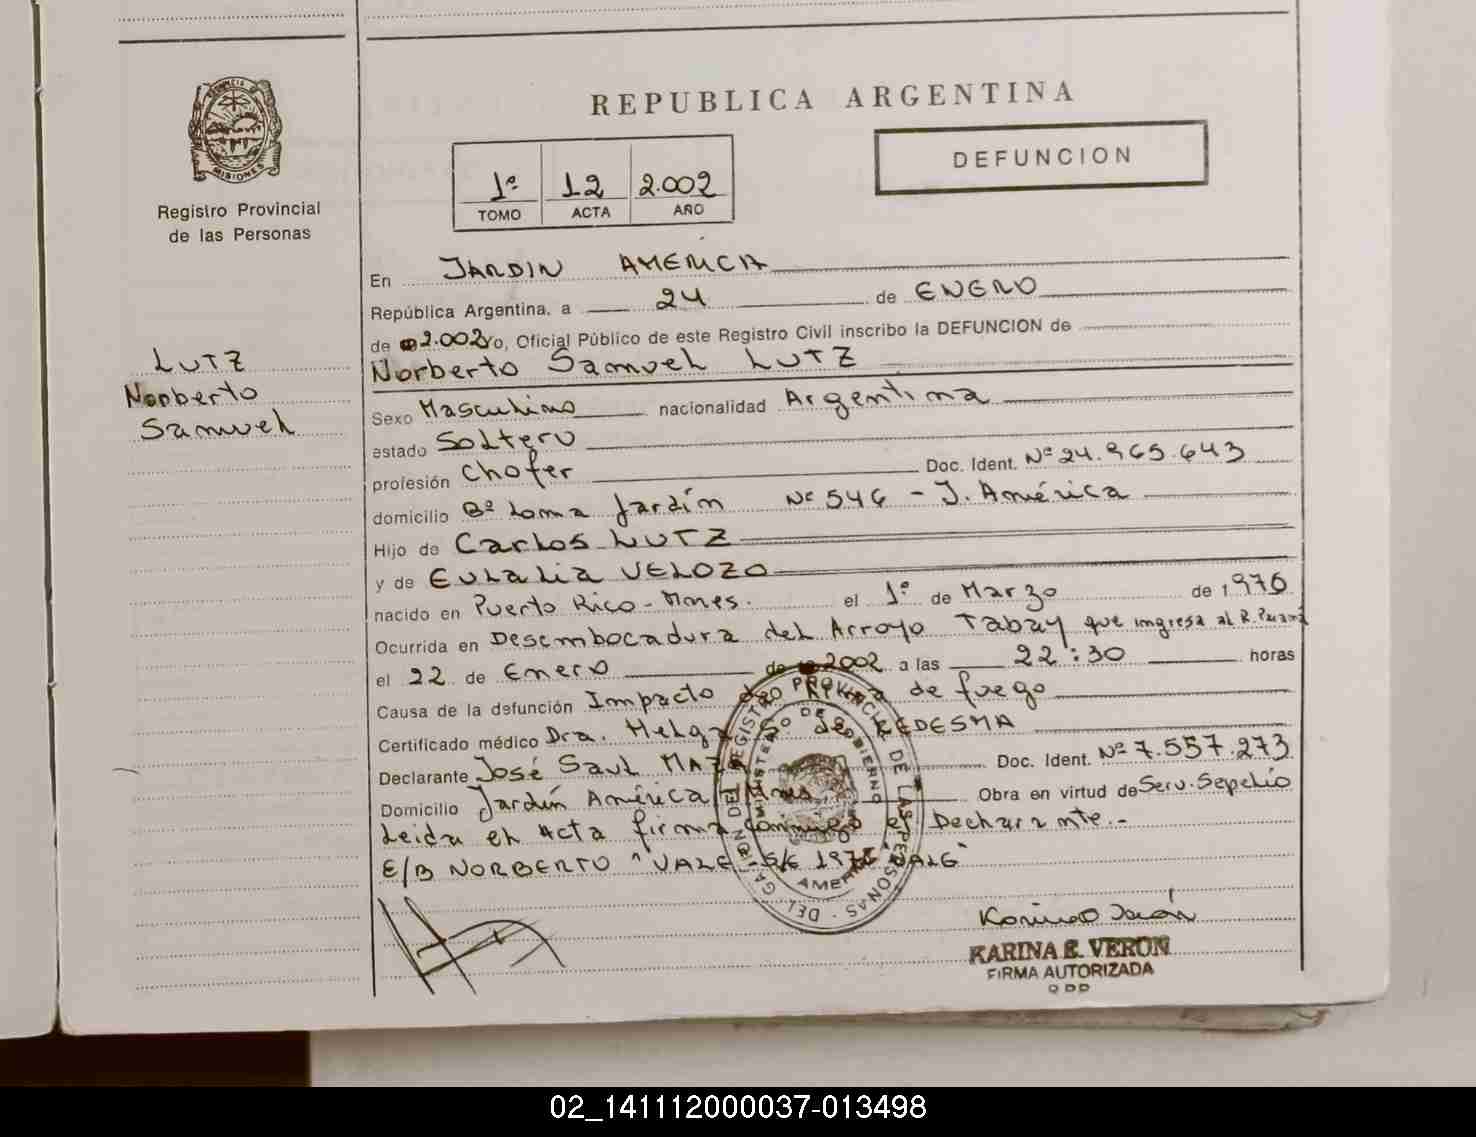 PROVINCIA DE
MISIONES
Registro Provincial
de las Personas
LUTZ
Norberto
Samuel
REPUBLICA ARGENTINA
1º 12 2.002
TOMO ACTA AÑO
DEFUNCION
En JARDIN AMERICA
República Argentina, a 24 de ENERO
de 2.002 Yo, Oficial Público de este Registro Civil inscribo la DEFUNCION de
Norberto Samuel LUTZ
Sexo Masculino nacionalidad Argentina
estado Soltero
profesión Chofer Doc. Ident. Nº 24.965.643
domicilio Bº Loma Jardín Nº 546 - J. América
Hijo de Carlos LUTZ
y de Eulalia VELOZO
nacido en Puerto Rico - Mnes. el 1º de Marzo de 1976
Ocurrida en Desembocadura del Arroyo Tabay que ingresa al R. Paraná
el 22 de Enero de 2002 a las 22:30 horas
Causa de la defunción Impacto de Arma de fuego
Certificado médico Dra. Helga LEDESMA
Declarante José Saul Doc. Ident. Nº 7.557.273
Domicilio Jardín América Mnes. Obra en virtud de Serv. Sepelio
Leida el Acta firma conmigo el Declarante.-
E/B NORBERTO "VALE" S/E 1976 "VALE"
REGISTRO PROVINCIAL DE LAS PERSONAS
MINISTERIO DE GOBIERNO
KARINA E. VERON
FIRMA AUTORIZADA
02_141112000037-013498